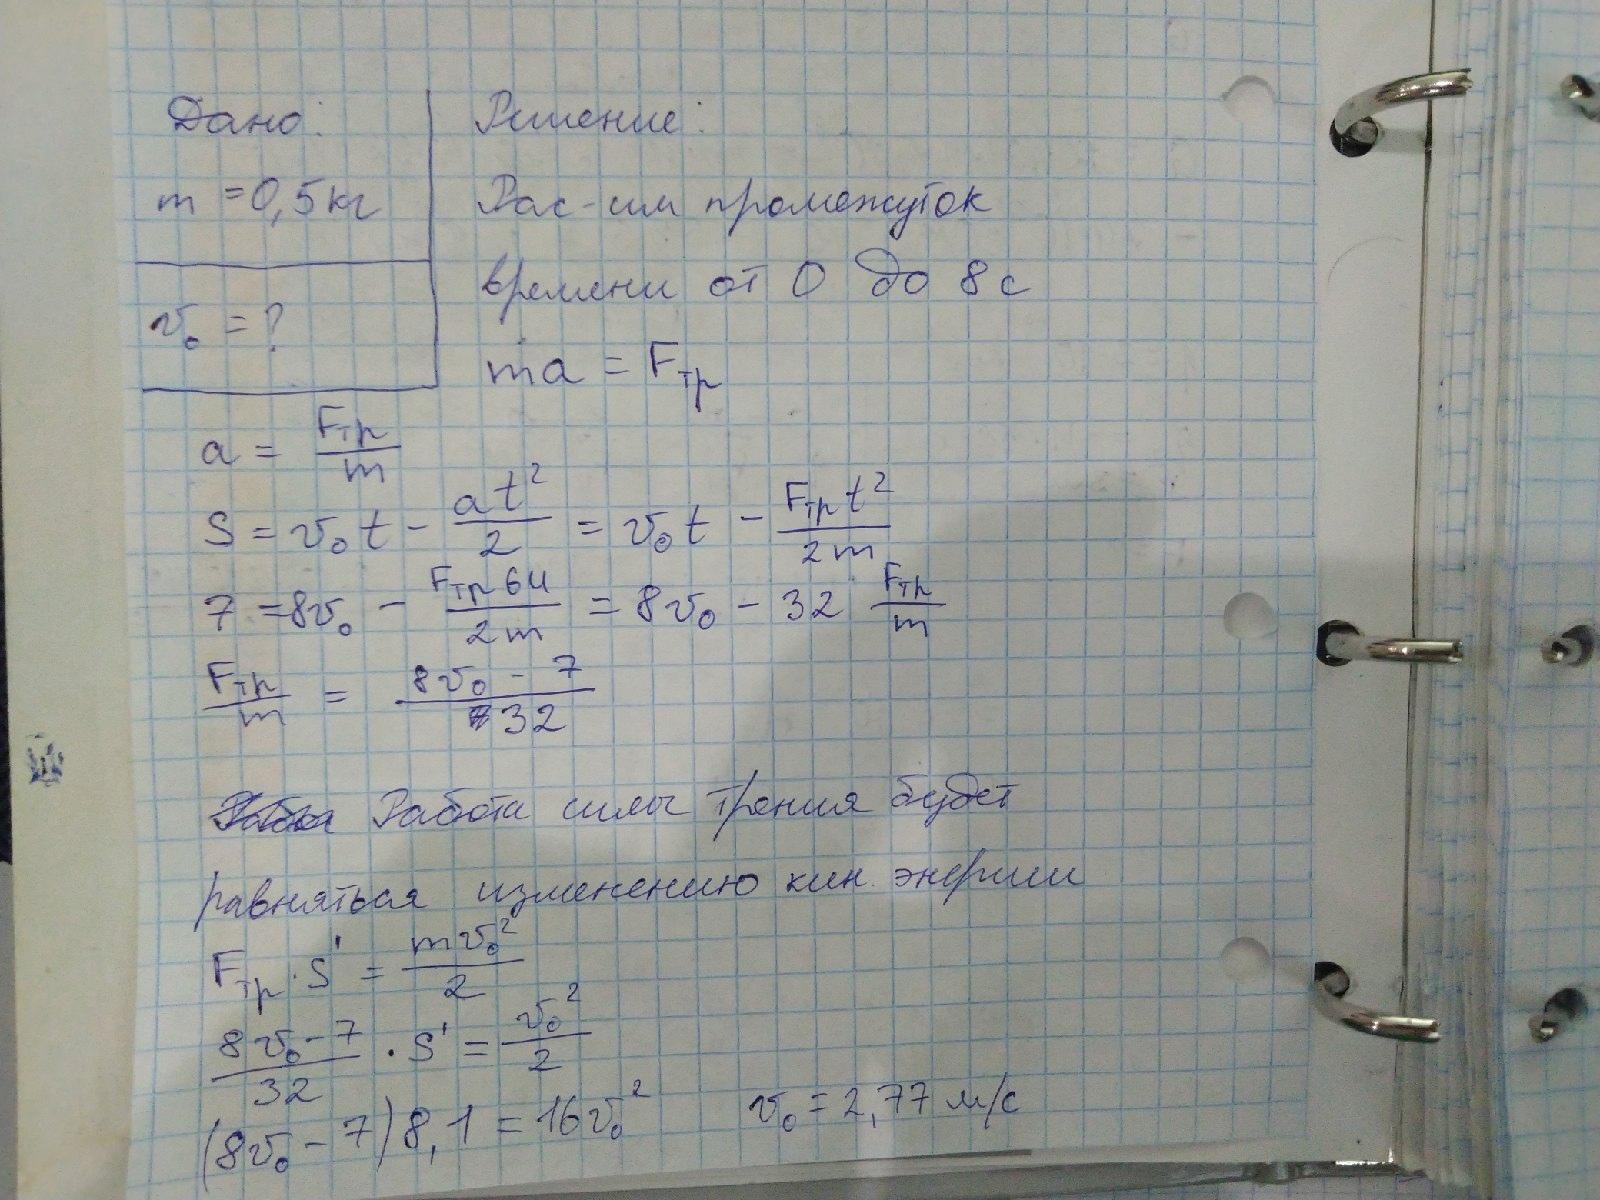 Дано:
m = 0,5 кг
v₀ = ?
Решение:
Рас-им промежуток
времени от 0 до 8 с
ma = Fтр
a = Fтр/m
S = v₀t - at²/2 = v₀t - Fтр t²/2m
7 = 8v₀ - Fтр 64/2m = 8v₀ - 32 Fтр/m
Fтр/m = (8v₀ - 7)/32
Работа силы трения будет
равняться изменению кин. энергии
Fтр · S' = mv₀²/2
(8v₀ - 7)/32 · S' = v₀²/2
(8v₀ - 7) 8,1 = 16v₀² v₀ = 2,77 м/с